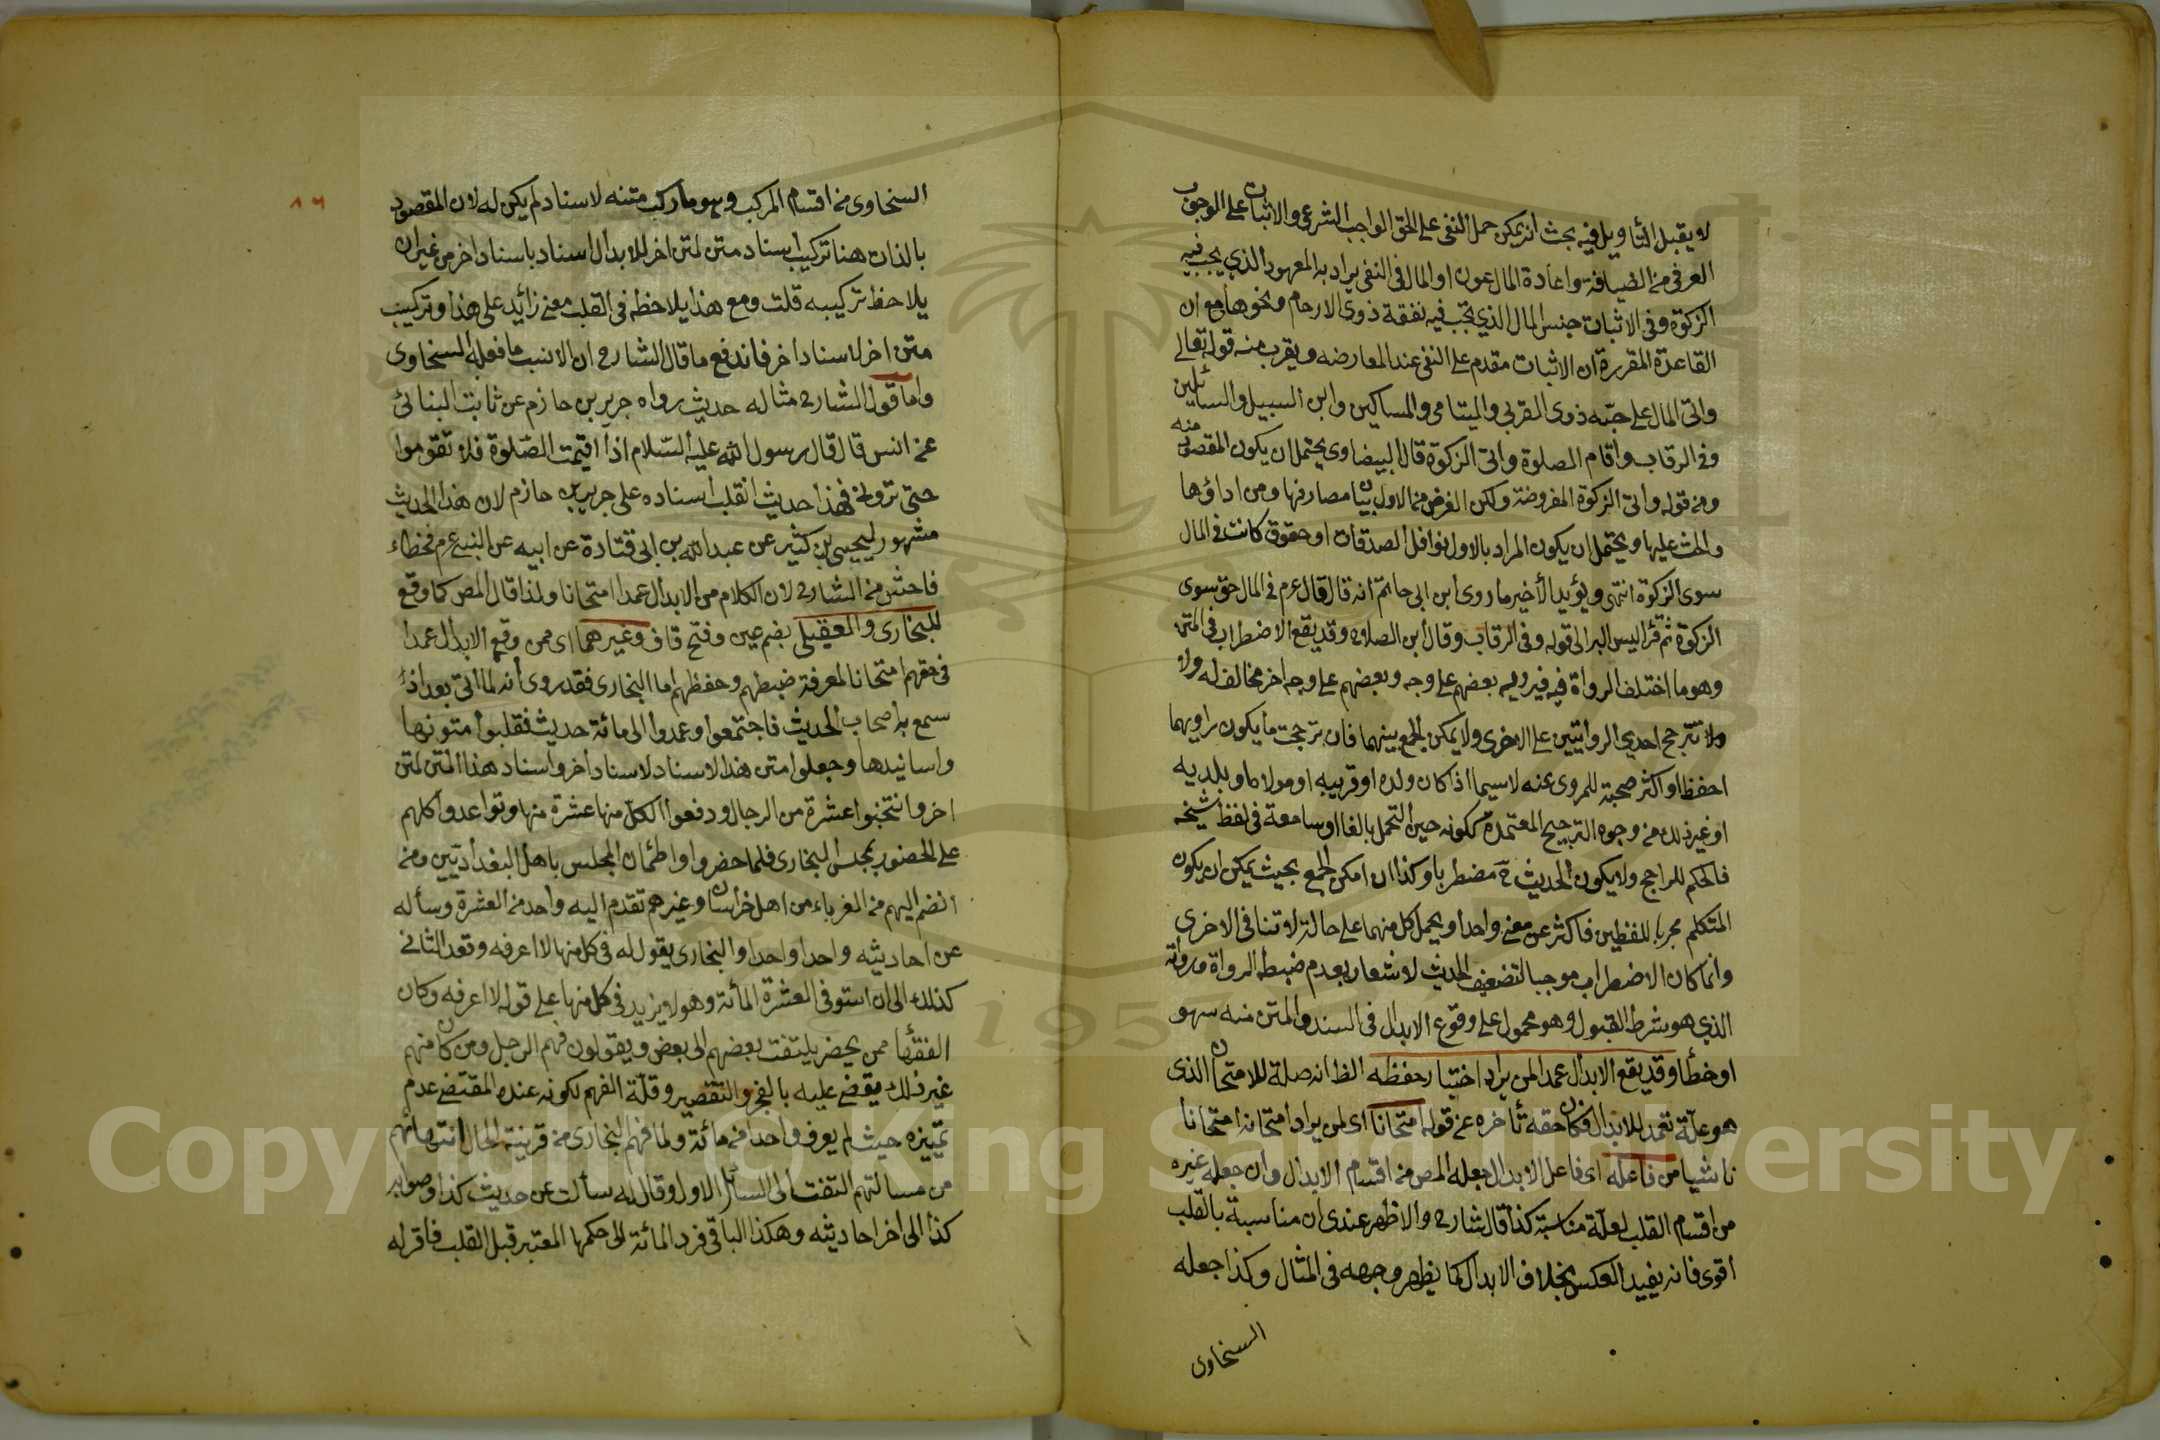 لا يقبل التأويل فيه بحث انه يمكن حمل النفى على الحق الواجب الشرعى والاثبات على الوجوب
العرفى من الضيافة واعادة المال عون او المال فى النفى يراد به المعهود الذي يجب فيه
الزكوة وفى الاثبات جنس المال الذي تجب فيه نفقة ذوى الارحام ونحوها مع ان
القاعدة المقررة ان الاثبات مقدم على النفى عند المعارضه ويقرب منه قوله تعالى
واتى المال على حبه ذوى القربى واليتامى والمساكين وابن السبيل والسائلين
وفى الرقاب واقام الصلوة واتى الزكوة قال البيضاوى يحتمل ان يكون المقصود منه
ومن قوله واتى الزكوة المفروضة ولكن الغرض من الاول بيان مصارفها ومن اداؤها
والحث عليها ويحتمل ان يكون المراد بالاول نوافل الصدقات او حقوق كانت فى المال
سوى الزكوة انتهى ويؤيد الأخير ما روى ابن ابى حاتم انه قال قال عم فى المال حق سوى
الزكوة ثم قرأ ليس البر الى قوله وفى الرقاب وقال ابن الصلاح وقد يقع الاضطراب فى المتن
وهو ما اختلف الرواة فيه فيرويه بعضهم على وجه وبعضهم على وجه اخر مخالف له ولا
ولا تترجح احدى الروايتين على الاخرى ولا يمكن الجمع بينهما فان ترجحت ما يكون راويهما
احفظ او اكثر صحبة للمروى عنه لا سيما اذا كان ولده او قريبه او مولاه او بلديه
او غير ذلك من وجوه الترجيح المعتمدة ككونه حين التحمل بالغا او سامعة فى لفظ شيخه
فالحكم للراجح ولا يكون الحديث ح مضطربا وكذا ان امكن الجمع بحيث يمكن ان يكون
المتكلم معربا للفظين فاكثر عن معنى واحد او يحمل كل منهما على حالة لا تنافى الاخرى
وانما كان الاضطراب موجبا لتضعيف الحديث لاشعار بعدم ضبط الرواة ورواته
الذي هو شرط القبول وهو محمول على وقوع الابدال فى السند والمتن منه سهو
او خطأ وقد يقع الابدال عمدا لمن يراد اختبار حفظه الظ انه صلة للامتحان الذى
هو علة تعمد للابدال فكان حقه تأخره عن قوله امتحانا اى لمن يراد امتحانه امتحانا
ناشيا من فاعله اى فاعل الابدال جعله المص من اقسام الابدال وان جعله غيره
من اقسام القلب لعلة مناسبة كذا قال شارح والاظهر عندى ان مناسبة بالقلب
أقوى فانه يفيد العكس بخلاف الابدال كما يظهر وجهه فى المثال وكذا جعله
السخاوى
٨٦
السخاوى من اقسام المركب وهو ما ركب متنه لاسناد لم يكن له لان المقصود
بالذات هنا تركيب اسناد متن لمتن اخر لا ابدال اسناد باسناد اخر من غير ان
يلاحظ تركيبه قلت ومع هذا يلاحظه فى القلب معنى زائد على هذا وتركيب
متن اخر لاسناد اخر فاندفع ما قال الشارح ان الانسب ما فعله السخاوى
واما قول الشارح مثاله حديث رواه جرير بن حازم عن ثابت البنانى
عن انس قال قال رسول الله عليه السلام اذا اقيمت الصلوة فلا تقوموا
حتى ترونى فهذا حديث انقلب اسناده على جرير بن حازم لان هذا الحديث
مشهور ليحيى بن كثير عن عبد الله بن ابى قتادة عن ابيه عن النبى عم فخطاء
فاحش من الشارح لان الكلام من الابدال عمدا امتحانا ولذا قال المص كما وقع
للبخارى والعقيلى بضم عين وفتح قاف وغيرهما اى ممن وقع الابدال عمدا
فى حقهم امتحانا لمعرفة ضبطهم وحفظهم اما البخارى فقد روى أنه لما اتى بغداذ
سمع به اصحاب الحديث فاجتمعوا وعمدوا الى مائة حديث فقلبوا متونها
واسانيدها وجعلوا متن هذا الاسناد لاسناد اخر واسناد هذا المتن لمتن
اخر وانتخبوا عشرة من الرجال ودفعوا لكل منها عشرة منها وتواعدوا كلهم
على الحضور بمجلس البخارى فلما حضروا واطمان المجلس باهل البغداديين ومن
انضم اليهم من الغرباء من اهل خراسان وغيرهم تقدم اليه واحد من العشرة وسأله
عن احاديثه واحدا واحدا والبخارى يقول له فى كل منها لا اعرفه وتعد الثانى
كذلك الى ان استوفى العشرة المائة وهو لا يزيد فى كل منها على قوله لا اعرفه وكان
الفقهاء ممن يحضر يلتفت بعضهم الى بعض ويقولون فهم الرجل ومن كان منهم
غير ذلك يقضى عليه بالعجز والتقصير وقلة الفهم لكونه عنده المقتضى عدم
تمييزه حيث لم يعرف واحدا من مائة ولما فهم البخارى من قرينة الحال انتهائهم
من مسالتهم التفت الى السائل الاول وقال له سألت عن حديث كذا وصوابه
كذا الى اخر احاديثه وهكذا الباقى فرد المائة الى حكمها المعتبر قبل القلب فاقر له
Copyright © King Saud University
1957